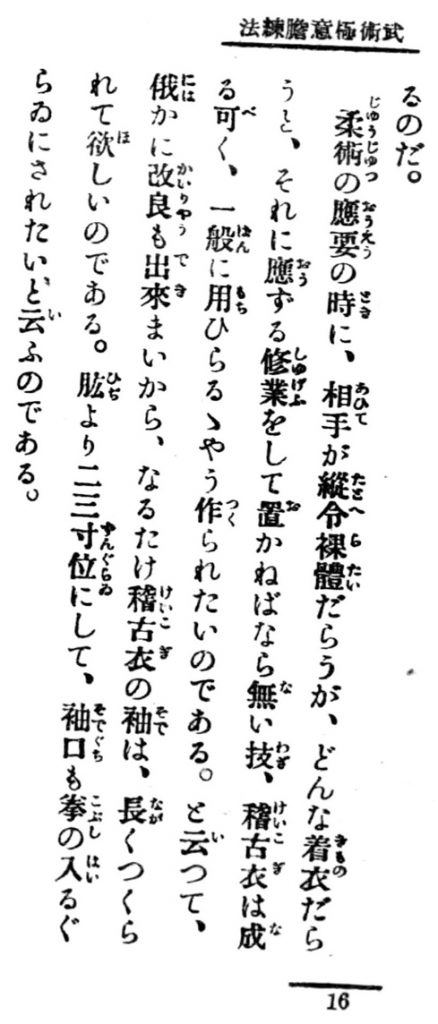 武術極意膽練法
るのだ。
柔術の應要の時に、相手が縱令裸體だらうが、どんな着衣だら
うと、それに應ずる修業をして置かねばなら無い技、稽古衣は成
る可く、一般に用ひらるゝやう作られたいのである。と云つて、
俄かに改良も出來まいから、なるたけ稽古衣の袖は、長くつくら
れて欲しいのである。肱より二三寸位にして、袖口も拳の入るぐ
らゐにされたいと云ふのである。
16